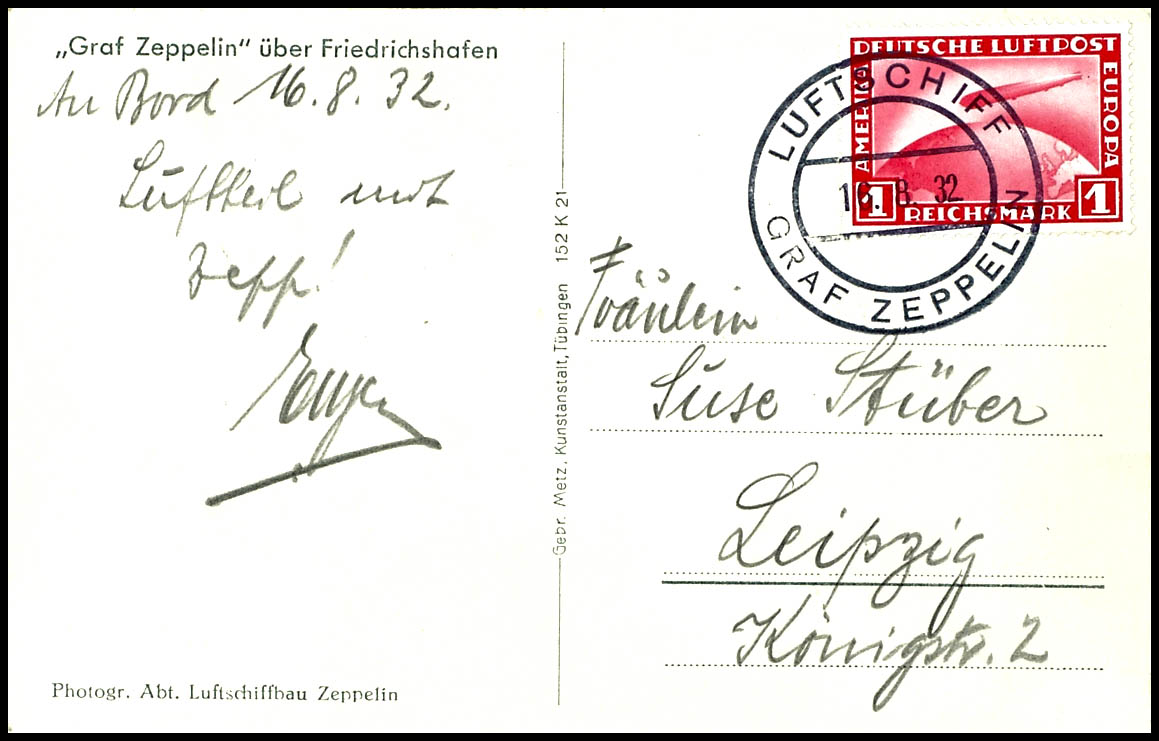 „Graf Zeppelin" über Friedrichshafen
An Bord 16.8.32.
Luftheil mit
Zepp!
Gebr. Metz, Kunstanstalt, Tübingen 152 K 21
Photogr. Abt. Luftschiffbau Zeppelin
DEUTSCHE LUFTPOST
AMERIKA
EUROPA
1 REICHSMARK 1
LUFTSCHIFF
16. 8. 32
GRAF ZEPPELIN
Fräulein
Suse Stüber
Leipzig
Königstr. 2